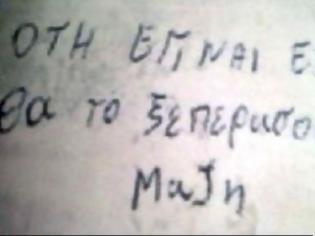 ΟΤΗ ΕΙΝΑΙ Ε
θα το ξεπερασο
Μαζη